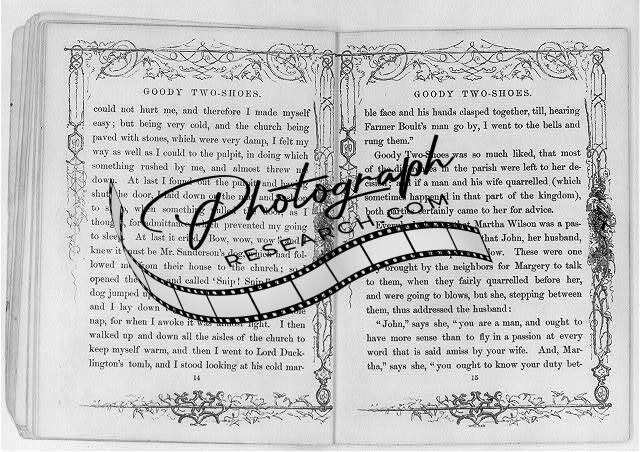 GOODY TWO-SHOES.
could not hurt me, and therefore I made myself
easy; but being very cold, and the church being
paved with stones, which were very damp, I felt my
way as well as I could to the pulpit, in doing which
something rushed by me, and almost threw me
down. At last I found out the pulpit, and having
shut the door, laid down on the mat and
to when something
though for admittance which prevented my going
to sleep. At last it cried Bow, wow, wow
knew it must be Mr. Sanderson's dog, which had fol-
lowed me from their house to the church; so
opened the and called 'Snip! Snip!
dog jumped up
and I lay down
nap, for when I awoke it was almost light. I then
walked up and down all the aisles of the church to
keep myself warm, and then I went to Lord Duck-
lington's tomb, and I stood looking at his cold mar-
14
GOODY TWO-SHOES.
ble face and his hands clasped together, till, hearing
Farmer Boult's man go by, I went to the bells and
rung them."
Goody Two-Shoes was so much liked, that most
of the in the parish were left to her de-
if a man and his wife quarrelled (which
sometimes happened in that part of the kingdom),
both certainly came to her for advice.
Martha Wilson was a pas-
that John, her husband,
These were one
brought by the neighbors for Margery to talk
to them, when they fairly quarrelled before her,
and were going to blows, but she, stepping between
them, thus addressed the husband:
"John," says she, "you are a man, and ought to
have more sense than to fly in a passion at every
word that is said amiss by your wife. And, Mar-
tha," says she, "you ought to know your duty bet-
15
Photograph
RESEARCH.COM